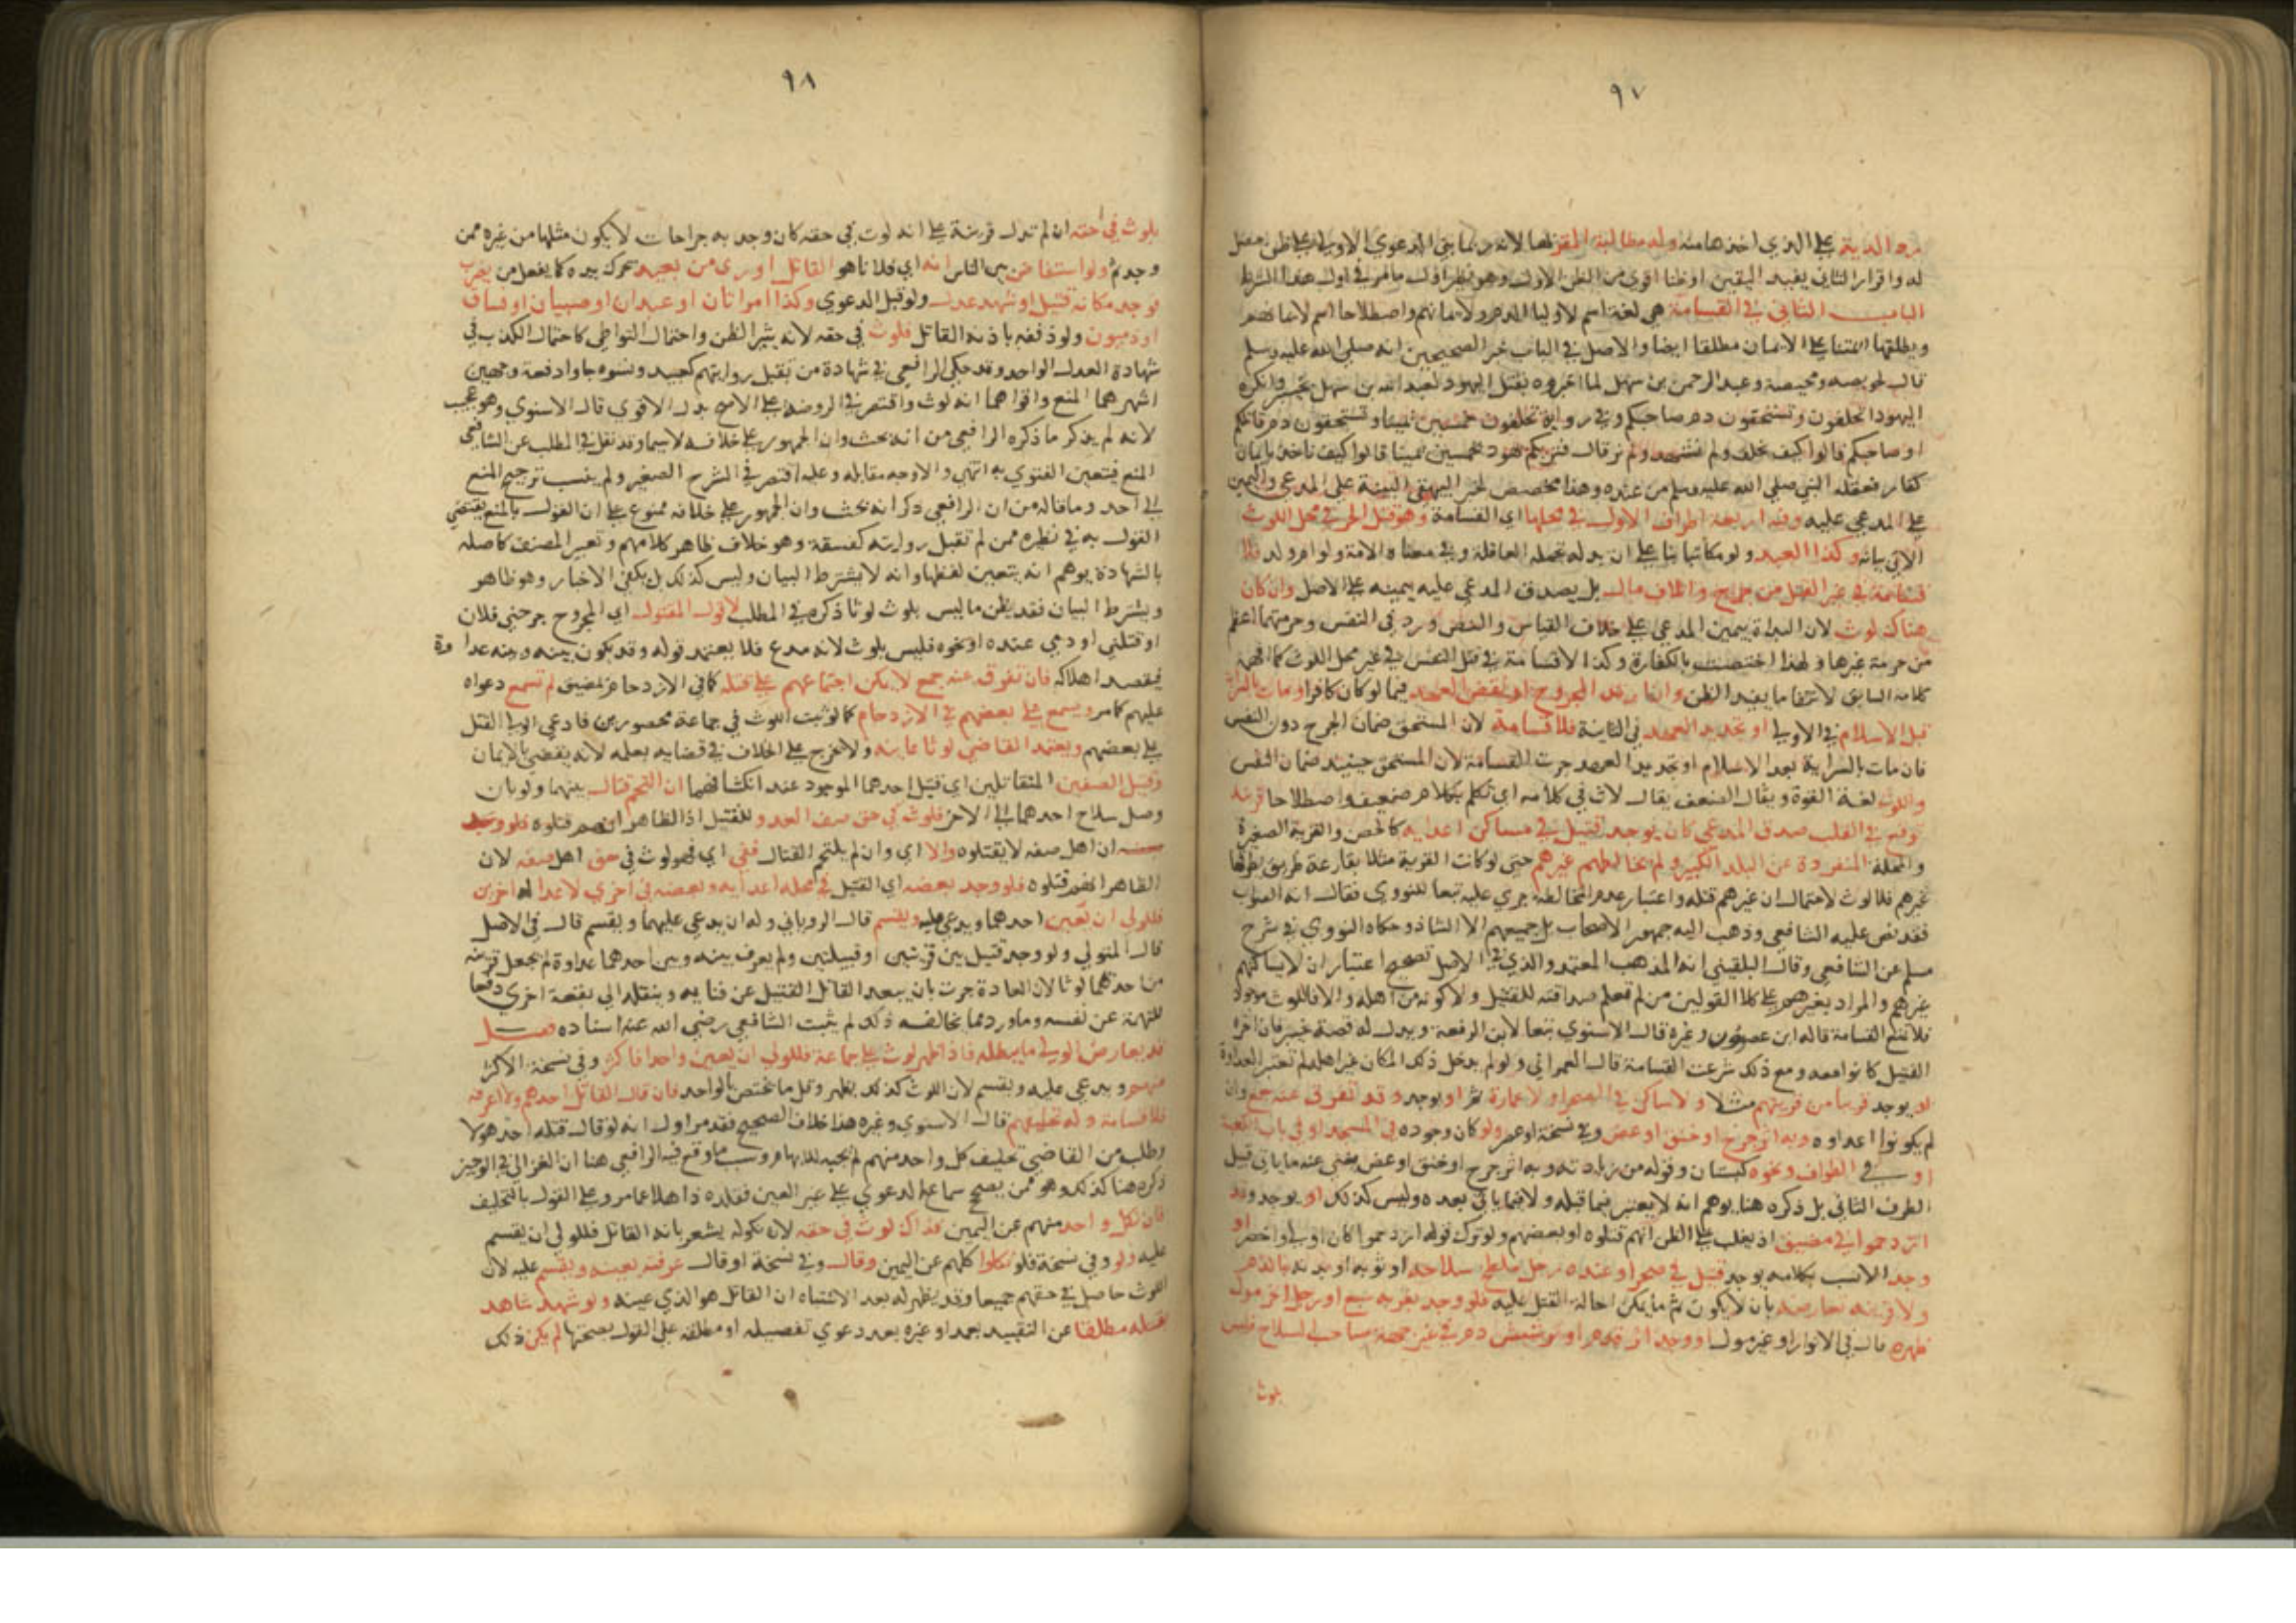 ٩٧
يرد الدية على الذي اخذها منه وله مطالبة المقر بها لانه ربما بنى الدعوى الاولى على ظن حصل
له واقرار الثاني يفيد اليقين او ظنا اقوى من الظن الاول وهو نظير اول ما مر في اول هذا الشرط
الباب الثاني في القسامة هي لغة اسم لاوليا الدم ولايمانهم واصطلاحا اسم لايمانهم
ويطلقها ايضا والاصل في الباب خبر الصحيحين انه صلى الله عليه وسلم
قال لحويصه ومحيصة وعبد الرحمن بن سهل لما اخبروه بقتل اليهود لعبد الله بن سهل بخيبر وانكره
اليهود اتحلفون وتستحقون دم صاحبكم وفي رواية تحلفون خمسين يمينا وتستحقون دم قاتلكم
او صاحبكم قالوا كيف نحلف ولم نشهد ولم نر قال فتبريكم يهود بخمسين يمينا قالوا كيف ناخذ بايمان
كفار فعقله النبي صلى الله عليه وسلم من عنده وهذا مخصص لخبر البيهقي البينة على المدعي واليمين
على المدعى عليه وفيه اربعة اطراف الاول في محلها اي القسامة وهو قتل الحر في محل اللوث
الاتي بيانه وكذا العبد ولو مكاتبا بنا على ان بدله تحمله العاقلة وفي معناه الامة ولو ام ولد فلا
قسامة في غير القتل من جراح واتلاف مال بل يصدق المدعى عليه بيمينه على الاصل وان كان
هناك لوث لان البداة بيمين المدعي على خلاف القياس والنص ورد في النفس وحرمتها اعظم
من حرمة غيرها ولهذا اختصت بالكفارة وكذا لا قسامة في قتل النفس في غير محل اللوث كما افهمه
كلامه السابق لانتفا ما يفيد الظن وان ارتد المجروح او نقض العهد فيما لو كان كافرا ومات بالسراية
قبل الاسلام في الاولى او تجديد العهد في الثانية فلا قسامة لان المستحق ضمان الجرح دون النفس
فان مات بالسراية بعد الاسلام او تجديد العهد جرت القسامة لان المستحق حينيذ ضمان النفس
واللوث لغة القوة ويقال الضعف يقال لاث في كلامه اي تكلم بكلام ضعيف واصطلاحا قرينة
توقع في القلب صدق المدعي كان يوجد قتيل في مساكن اعدايه كالحصن والقرية الصغيرة
والمحلة المنفردة عن البلد الكبير ولم يخالطهم غيرهم حتى لو كانت القرية مثلا بقارعة طريق يطرقها
غيرهم فلا لوث لاحتمال ان غيرهم قتله واعتبار عدم المخالطة جرى عليه تبعا للنووي فقال انه الصواب
فقد نص عليه الشافعي وذهب اليه جمهور الاصحاب بل جميعهم الا الشاذ وحكاه النووي في شرح
مسلم عن الشافعي وقال البلقيني انه المذهب المعتمد والذي في الاصل تصحيح اعتبار ان لا يساكنهم
غيرهم والمراد بغيرهم على كلا القولين من لم تعلم صداقته للقتيل ولا كونه من اهله والا فاللوث موجود
فلا تمنع القسامة قاله ابن عصرون وغيره قال الاسنوي تبعا لابن الرفعة ويدل له قصة خيبر فان اخوة
القتيل كانوا معه ومع ذلك شرعت القسامة قال العمراني ولو لم يدخل ذلك المكان غير اهله لم تعتبر العداوة
او يوجد قريبا من قريتهم مثلا ولا ساكن في الصحرا ولا عمارة ثم او يوجد وقد تفرق عنه جمع وان
لم يكونوا اعداوه وبه اثر جرح او خنق او عض وفي نسخة او عصر ولو كان وجوده في المسجد او في باب الكعبة
او في الطواف ونحوه كبستان وقوله من زيادته وبه اثر جرح او خنق او عض يغني عنه ما ياتي قبيل
الطرف الثاني بل ذكره هنا يوهم انه لا يعتبر فيما قبله ولا فيما ياتي بعده وليس كذلك او يوجد وقد
ازدحموا في مضيق اذ يغلب على الظن انهم قتلوه او بعضهم ولو ترك قوله ازدحموا كان اولى واخصر او
وجد الانسب بكلامه يوجد قتيل في صحرا وعنده رجل ملطخ سلاحه او ثوبه او بدنه بالدم
ولا قرينة تعارضه بان لا يكون ثم ما يمكن احالة القتل عليه فلو وجد بقربه سبع او رجل اخر مول
ظهره قال في الانوار او غير مول او وجد اثر قدم او ترشيش دم في غير جهة صاحب السلاح فليس
بلوث
٩٨
بلوث في حقه ان لم تدل قرينة على انه لوث في حقه كان وجد به جراحات لا يكون مثلها من غيره ممن
وجد ثم ولو استفاض بين الناس انه اي فلانا هو القاتل او رى من بعيد تحرك بيده كما يفعل من يضرب
فوجد مكانه قتيل او شهد عدل ولو قبل الدعوى وكذا امراتان او عبدان او صبيان او فساق
او ذميون ولو دفعة باذنه القاتل فلوث في حقه لانه يثير الظن واحتمال التواطي كاحتمال الكذب في
شهادة العدل الواحد وقد حكى الرافعي في شهادة من تقبل روايتهم كعبيد ونسوه جاوا دفعة وجهين
اشهرهما المنع واقواهما انه لوث واقتصر في الروضة على الاصح بدل الاقوى قال الاسنوي وهو عجيب
لانه لم يذكر ما ذكره الرافعي من انه بحث وان الجمهور على خلافه لاسيما وقد نقل في المطلب عن الشافعي
المنع فتتعين الفتوى به انتهى والاوجه مقابله وعليه اقتصر في الشرح الصغير ولم ينسب ترجيح المنع
الى احد وما قاله من ان الرافعي ذكر انه بحث وان الجمهور على خلافه ممنوع على ان القول بالمنع يقتضي
القول به في نظيره ممن لم تقبل روايته كفسقة وهو خلاف ظاهر كلامهم وتعبير المصنف كاصله
بالشهادة يوهم انه يتعين لفظها وانه لا يشترط البيان وليس كذلك بل يكفي الاخبار وهو ظاهر
ويشترط البيان فقد يظن ما ليس بلوث لوثا ذكره في المطلب لا قول المقتول اي المجروح جرحني فلان
او قتلني او دمي عنده او نحوه فليس بلوث لانه مدع فلا يعتمد قوله وقد يكون بينه وبينه عداوة
فيقصد اهلاكه فان تفرق عنه جمع لا يمكن اجتماعهم على قتله كما في الازدحام بمضيق لم تسمع دعواه
عليهم كما مر ويسمع على بعضهم في الازدحام كما لو ثبت اللوث في جماعة محصورين فادعى الولي القتل
على بعضهم ويعتمد القاضي لوثا عاينه ولا يخرج على الخلاف في قضايه بعلمه لانه يقضي بالايمان
وقتيل الصفين المتقاتلين اي قتيل احدهما الموجود عند انكشافهما ان التحم قتال بينهما ولو بان
وصل سلاح احدهما الى الاخر فلوث في حق صف العدو للقتيل اذ الظاهر انهم قتلوه
ان اهل صفه لا يقتلوه والا اي وان لم يلتحم القتال ففي اي فهو لوث في حق اهل صفه لان
الظاهر انهم قتلوه فلو وجد بعضه اي القتيل في محلة اعدايه وبعضه في اخرى لاعدا له اخرين
فللولي ان تعين احدهما ويدعي عليه ويقسم قال الروياني وله ان يدعي عليهما ويقسم قال في الاصل
قال المتولي ولو وجد قتيل بين قريتين او قبيلتين ولم يعرف بينه وبين احدهما عداوة لم يجعل قربه
من احدهما لوثا لان العادة جرت بان يبعد القاتل القتيل عن فنايه وينقله الى بقعة اخرى دفعا
للتهمة عن نفسه وما ورد مما يخالف ذلك لم يثبت الشافعي رضي الله عنه اسناده فصل
قد يعارض اللوث ما يبطله فاذا ظهر لوث على جماعة فللولي ان يعين واحدا فاكثر وفي نسخة الاكثر
منهم ويدعي عليه ويقسم لان اللوث كذلك يظهر وقل ما يختص بالواحد فان قال القاتل احدهم ولا اعرفه
فلا قسامة وله تحليفهم قال الاسنوي وغيره هذا خلاف الصحيح فقد مر اول انه لو قال قتله احد هولا
وطلب من القاضي تحليف كل واحد منهم لم يجبه للابهام وسبب ما وقع فيه الرافعي هنا ان الغزالي في الوجيز
ذكره هنا كذلك وهو ممن يصحح سماع الدعوى على غير المعين فقلده ذاهلا عما مر وعلى القول بالتحليف
فان نكل واحد منهم عن اليمين فذاك لوث في حقه لان نكوله يشعر بانه القاتل فللولي ان يقسم
عليه ولو وفي نسخة فلو نكلوا كلهم عن اليمين وقال وفي نسخة او قال عرفته بعينه ويقسم عليه لان
اللوث حاصل في حقهم جميعا وقد يظهر له بعد الاشتباه ان القاتل هو الذي عينه ولو شهد شاهد
بقتله مطلقا عن التقييد بعمد او غيره بعد دعوى تفصيله او مطلقه على القول بصحتها لم يكن ذلك